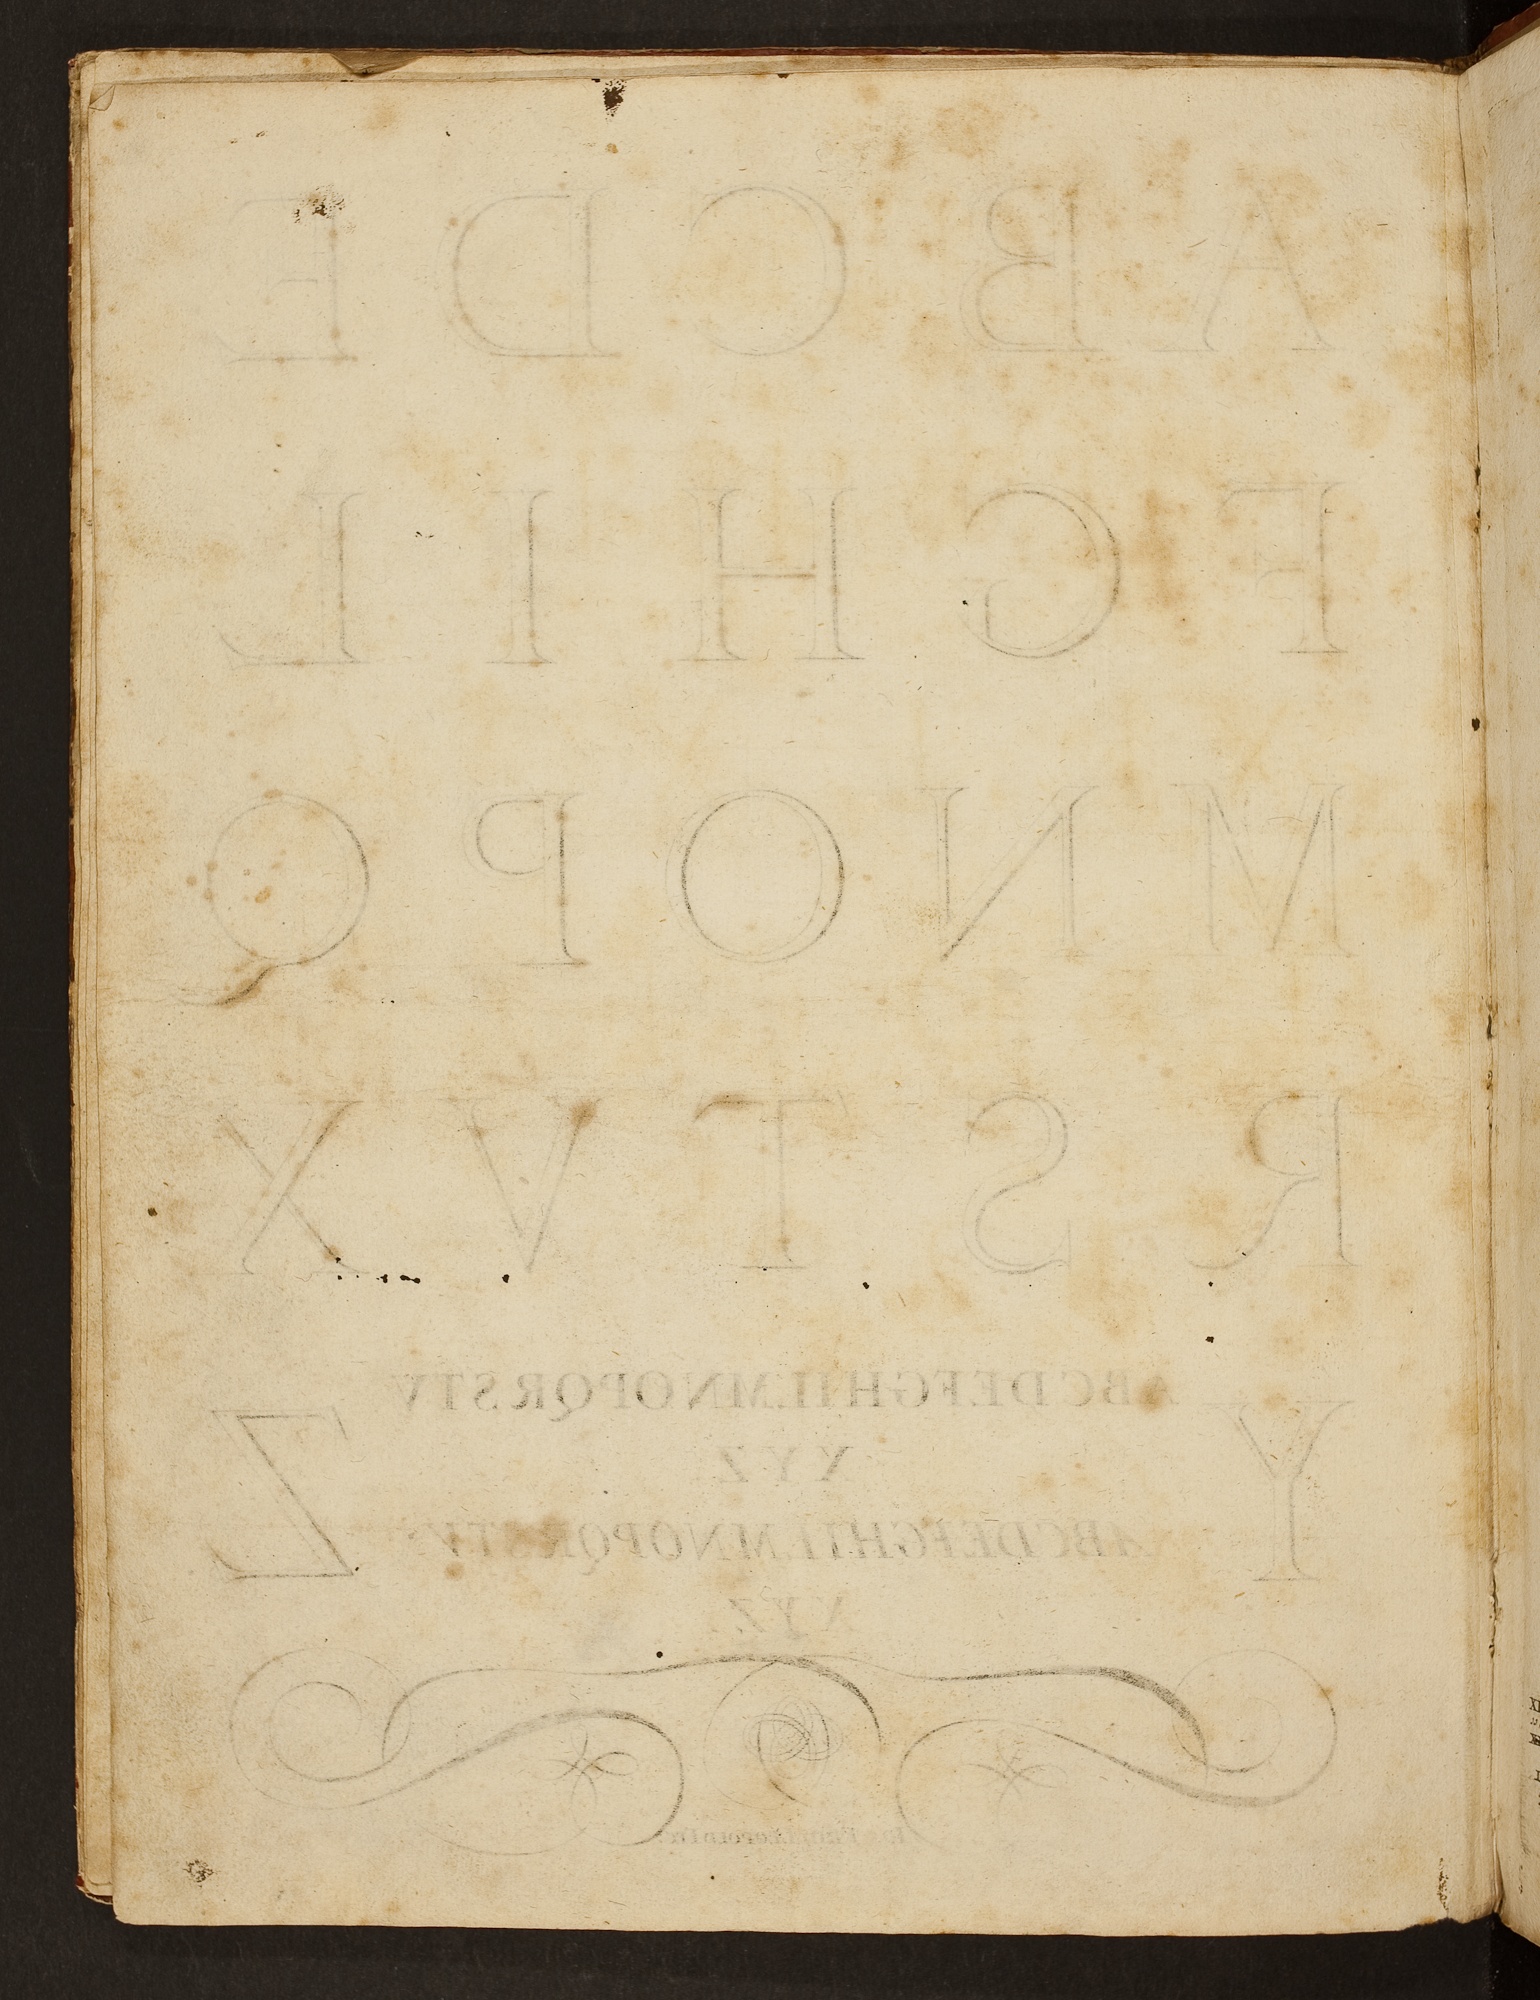 A B C D E
F G H I L
M N O P Q
R S T V X
Y Z
ABCDEFGHILMNOPQRSTV
XYZ
ABCDEFGHILMNOPQRSTV
XYZ.